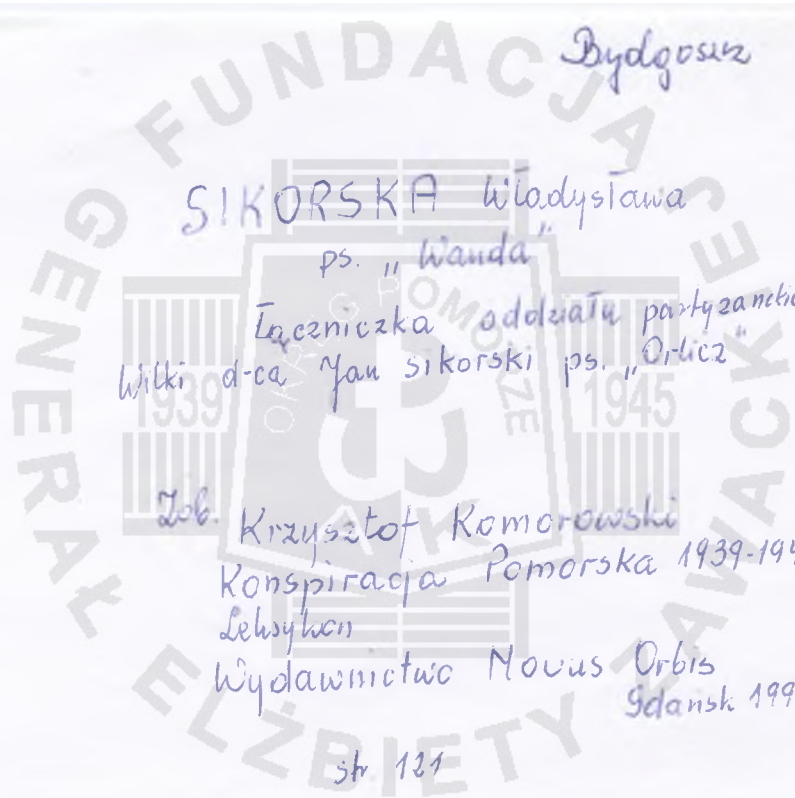 Bydgoszcz
SIKORSKA Władysława
ps. „Wanda"
Łączniczka oddziału
Wilki d-ca Jan Sikorski ps. „Orlicz"
Zob. Krzysztof Komorowski
Konspiracja Pomorska 1939-194
Leksykon
Wydawnictwo Novus Orbis
Gdańsk 199
str 121
FUNDACJA GENERAŁ ELŻBIETY ZAWACKIEJ
OKRĘG POMORZE
1939 1945
AK